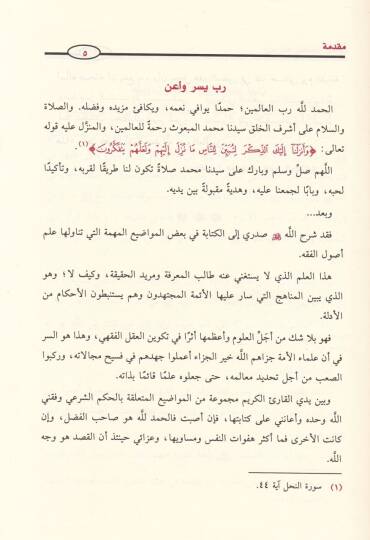 مقدمة
٥
رب يسر وأعن
الحمد لله رب العالمين؛ حمدًا يوافي نعمه، ويكافئ مزيده وفضله. والصلاة
والسلام على أشرف الخلق سيدنا محمد المبعوث رحمةً للعالمين، والمنزَّل عليه قوله
تعالى: ﴿وَأَنزَلْنَا إِلَيْكَ الذِّكْرَ لِتُبَيِّنَ لِلنَّاسِ مَا نُزِّلَ إِلَيْهِمْ وَلَعَلَّهُمْ يَتَفَكَّرُونَ﴾(١).
اللهم صلِّ وسلم وبارك على سيدنا محمد صلاةً تكون لنا طريقًا لقربه، وتأكيدًا
لحبه، وبابًا لجمعنا عليه، وهديةً مقبولةً بين يديه.
وبعد...
فقد شرح الله صدري إلى الكتابة في بعض المواضيع المهمة التي تناولها علم
أصول الفقه.
هذا العلم الذي لا يستغني عنه طالب المعرفة ومريد الحقيقة، وكيف لا؛ وهو
الذي يبين المناهج التي سار عليها الأئمة المجتهدون وهم يستنبطون الأحكام من
الأدلة.
فهو بلا شك من أجَلِّ العلوم وأعظمها أثرًا في تكوين العقل الفقهي، وهذا هو السر
في أن علماء الأمة جزاهم الله خير الجزاء أعملوا جهدهم في فسيح مجالاته، وركبوا
الصعب من أجل تحديد معالمه، حتى جعلوه علمًا قائمًا بذاته.
وبين يدي القارئ الكريم مجموعة من المواضيع المتعلقة بالحكم الشرعي وفقني
الله وحده وأعانني على كتابتها، فإن أصبت فالحمد لله هو صاحب الفضل، وإن
كانت الأخرى فما أكثر هفوات النفس ومساويها، وعزائي حينئذ أن القصد هو وجه
الله.
(١) سورة النحل آية ٤٤.